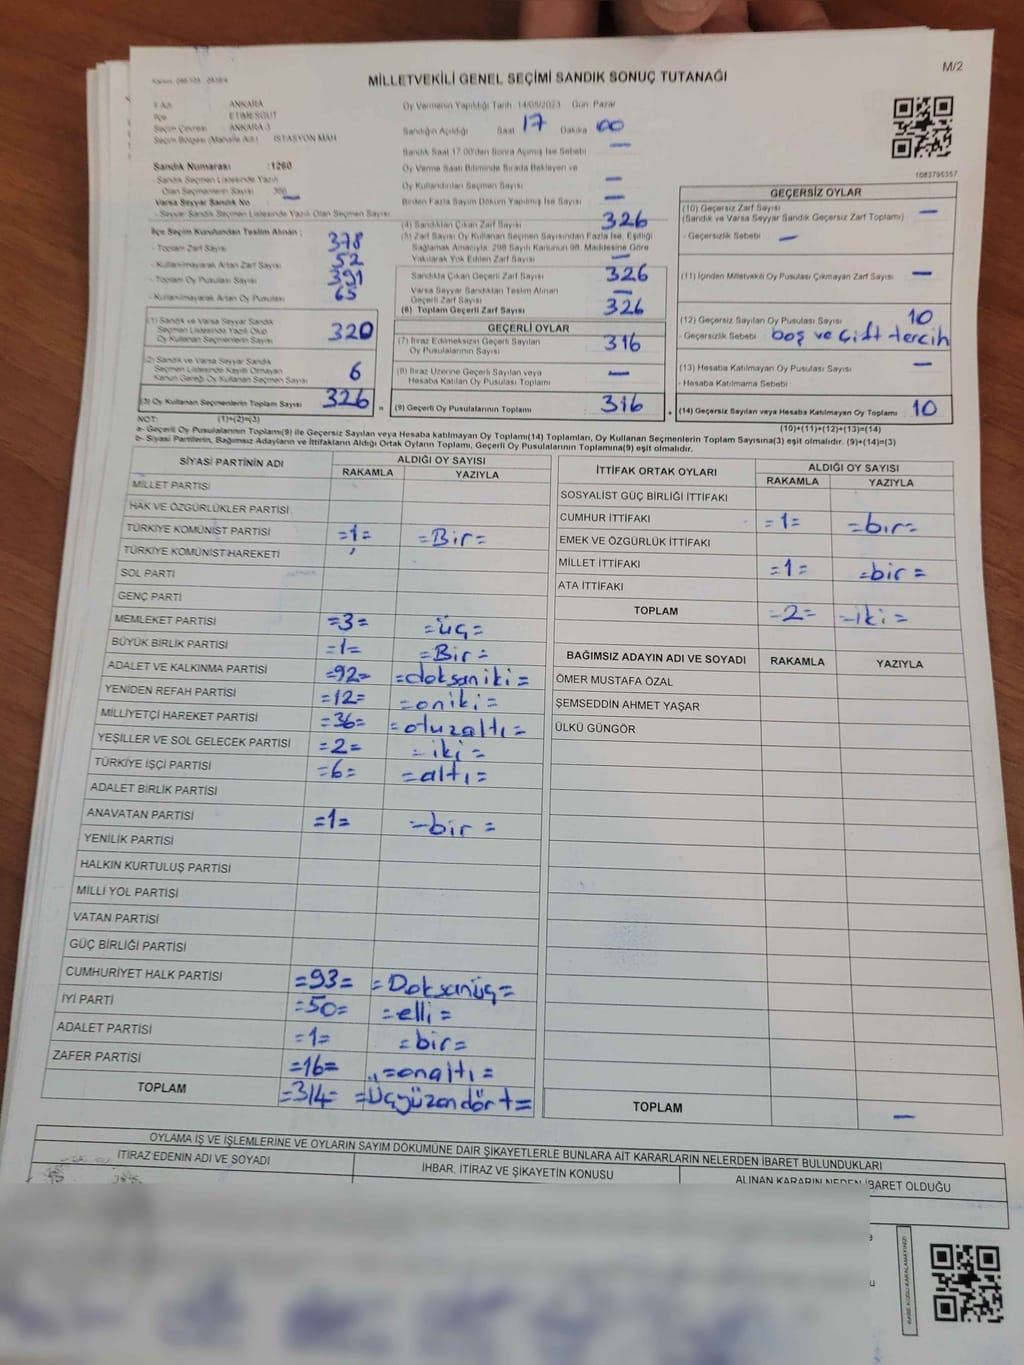 M/2
MİLLETVEKİLİ GENEL SEÇİMİ SANDIK SONUÇ TUTANAĞI
İl Adı ANKARA
İlçe ETİMESGUT
Seçim Çevresi ANKARA-3
Seçim Bölgesi (Mahalle Adı) İSTASYON MAH
Sandık Numarası :1260
- Sandık Seçmen Listesinde Yazılı
Olan Seçmenlerin Sayısı
Varsa Seyyar Sandık No —
- Seyyar Sandık Seçmen Listesinde Yazılı Olan Seçmen Sayısı
İlçe Seçim Kurulundan Teslim Alınan ;
- Toplam Zarf Sayısı 378
- Kullanılmayarak Artan Zarf Sayısı 52
- Toplam Oy Pusulası Sayısı 391
- Kullanılmayarak Artan Oy Pusulası 65
(1) Sandık ve Varsa Seyyar Sandık
Seçmen Listesinde Yazılı Olup
Oy Kullanan Seçmenlerin Sayısı 320
(2) Sandık ve Varsa Seyyar Sandık
Seçmen Listesinde Kayıtlı Olmayan
Kanun Gereği Oy Kullanan Seçmen Sayısı 6
(3) Oy Kullanan Seçmenlerin Toplam Sayısı 326
(1)+(2)=(3)
Oy Vermenin Yapıldığı Tarih 14/05/2023 Gün Pazar
Sandığın Açıldığı Saat 17 Dakika 00
Sandık Saat 17.00'den Sonra Açılmış İse Sebebi —
Oy Verme Saati Bitiminde Sırada Bekleyen ve
Oy Kullandırılan Seçmen Sayısı —
Birden Fazla Sayım Döküm Yapılmış İse Sayısı —
(4) Sandıktan Çıkan Zarf Sayısı 326
(5) Zarf Sayısı Oy Kullanan Seçmen Sayısından Fazla İse, Eşitliği
Sağlamak Amacıyla, 298 Sayılı Kanunun 98. Maddesine Göre
Yakılarak Yok Edilen Zarf Sayısı —
Sandıkta Çıkan Geçerli Zarf Sayısı 326
Varsa Seyyar Sandıktan Teslim Alınan
Geçerli Zarf Sayısı —
(6) Toplam Geçerli Zarf Sayısı 326
GEÇERLİ OYLAR
(7) İtiraz Edilmeksizin Geçerli Sayılan
Oy Pusulalarının Sayısı 316
(8) İtiraz Üzerine Geçerli Sayılan veya
Hesaba Katılan Oy Pusulası Toplamı —
= (9) Geçerli Oy Pusulalarının Toplamı 316
1083795357
GEÇERSİZ OYLAR
(10) Geçersiz Zarf Sayısı —
(Sandık ve Varsa Seyyar Sandık Geçersiz Zarf Toplamı)
- Geçersizlik Sebebi —
(11) İçinden Milletvekili Oy Pusulası Çıkmayan Zarf Sayısı —
(12) Geçersiz Sayılan Oy Pusulası Sayısı 10
- Geçersizlik Sebebi boş ve çift tercih
(13) Hesaba Katılmayan Oy Pusulası Sayısı —
- Hesaba Katılmama Sebebi
+ (14) Geçersiz Sayılan veya Hesaba Katılmayan Oy Toplamı 10
(10)+(11)+(12)+(13)=(14)
NOT:
a- Geçerli Oy Pusulalarının Toplamı(9) ile Geçersiz Sayılan veya Hesaba katılmayan Oy Toplamı(14) Toplamları, Oy Kullanan Seçmenlerin Toplam Sayısına(3) eşit olmalıdır. (9)+(14)=(3)
b- Siyasi Partilerin, Bağımsız Adayların ve İttifakların Aldığı Ortak Oyların Toplamı, Geçerli Oy Pusulalarının Toplamına(9) eşit olmalıdır.
SİYASİ PARTİNİN ADI ALDIĞI OY SAYISI
RAKAMLA YAZIYLA
MİLLET PARTİSİ
HAK VE ÖZGÜRLÜKLER PARTİSİ
TÜRKİYE KOMÜNİST PARTİSİ =1= =Bir=
TÜRKİYE KOMÜNİST HAREKETİ
SOL PARTİ
GENÇ PARTİ
MEMLEKET PARTİSİ =3= =üç=
BÜYÜK BİRLİK PARTİSİ =1= =Bir=
ADALET VE KALKINMA PARTİSİ =92= =doksaniki=
YENİDEN REFAH PARTİSİ =12= =oniki=
MİLLİYETÇİ HAREKET PARTİSİ =36= =otuzaltı=
YEŞİLLER VE SOL GELECEK PARTİSİ =2= =iki=
TÜRKİYE İŞÇİ PARTİSİ =6= =altı=
ADALET BİRLİK PARTİSİ
ANAVATAN PARTİSİ =1= =bir=
YENİLİK PARTİSİ
HALKIN KURTULUŞ PARTİSİ
MİLLİ YOL PARTİSİ
VATAN PARTİSİ
GÜÇ BİRLİĞİ PARTİSİ
CUMHURİYET HALK PARTİSİ =93= =Doksanüç=
İYİ PARTİ =50= =elli=
ADALET PARTİSİ =1= =bir=
ZAFER PARTİSİ =16= =onaltı=
TOPLAM =314= =Üçyüzondört=
İTTİFAK ORTAK OYLARI ALDIĞI OY SAYISI
RAKAMLA YAZIYLA
SOSYALİST GÜÇ BİRLİĞİ İTTİFAKI
CUMHUR İTTİFAKI =1= =bir=
EMEK VE ÖZGÜRLÜK İTTİFAKI
MİLLET İTTİFAKI =1= =bir=
ATA İTTİFAKI
TOPLAM =2= =iki=
BAĞIMSIZ ADAYIN ADI VE SOYADI RAKAMLA YAZIYLA
ÖMER MUSTAFA ÖZAL
ŞEMSEDDİN AHMET YAŞAR
ÜLKÜ GÜNGÖR
TOPLAM —
OYLAMA İŞ VE İŞLEMLERİNE VE OYLARIN SAYIM DÖKÜMÜNE DAİR ŞİKAYETLERLE BUNLARA AİT KARARLARIN NELERDEN İBARET BULUNDUKLARI
İTİRAZ EDENİN ADI VE SOYADI İHBAR, İTİRAZ VE ŞİKAYETİN KONUSU ALINAN KARARIN NEDEN İBARET OLDUĞU
KARE KODU KARALAMAYINIZ!